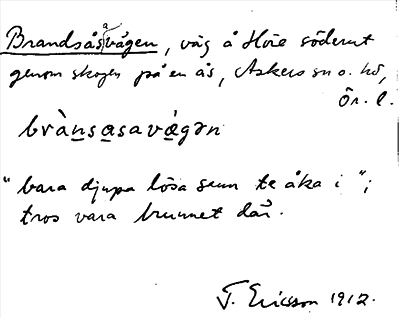 Brandsåsavägen, väg å Höie söderut
genom skogen på en ås, Askers sn o. hd,
Ör. l.
brànsasavägən
"bara djupa lösa sann te åka i";
tros vara brunnet där.
T. Ericsson 1912.